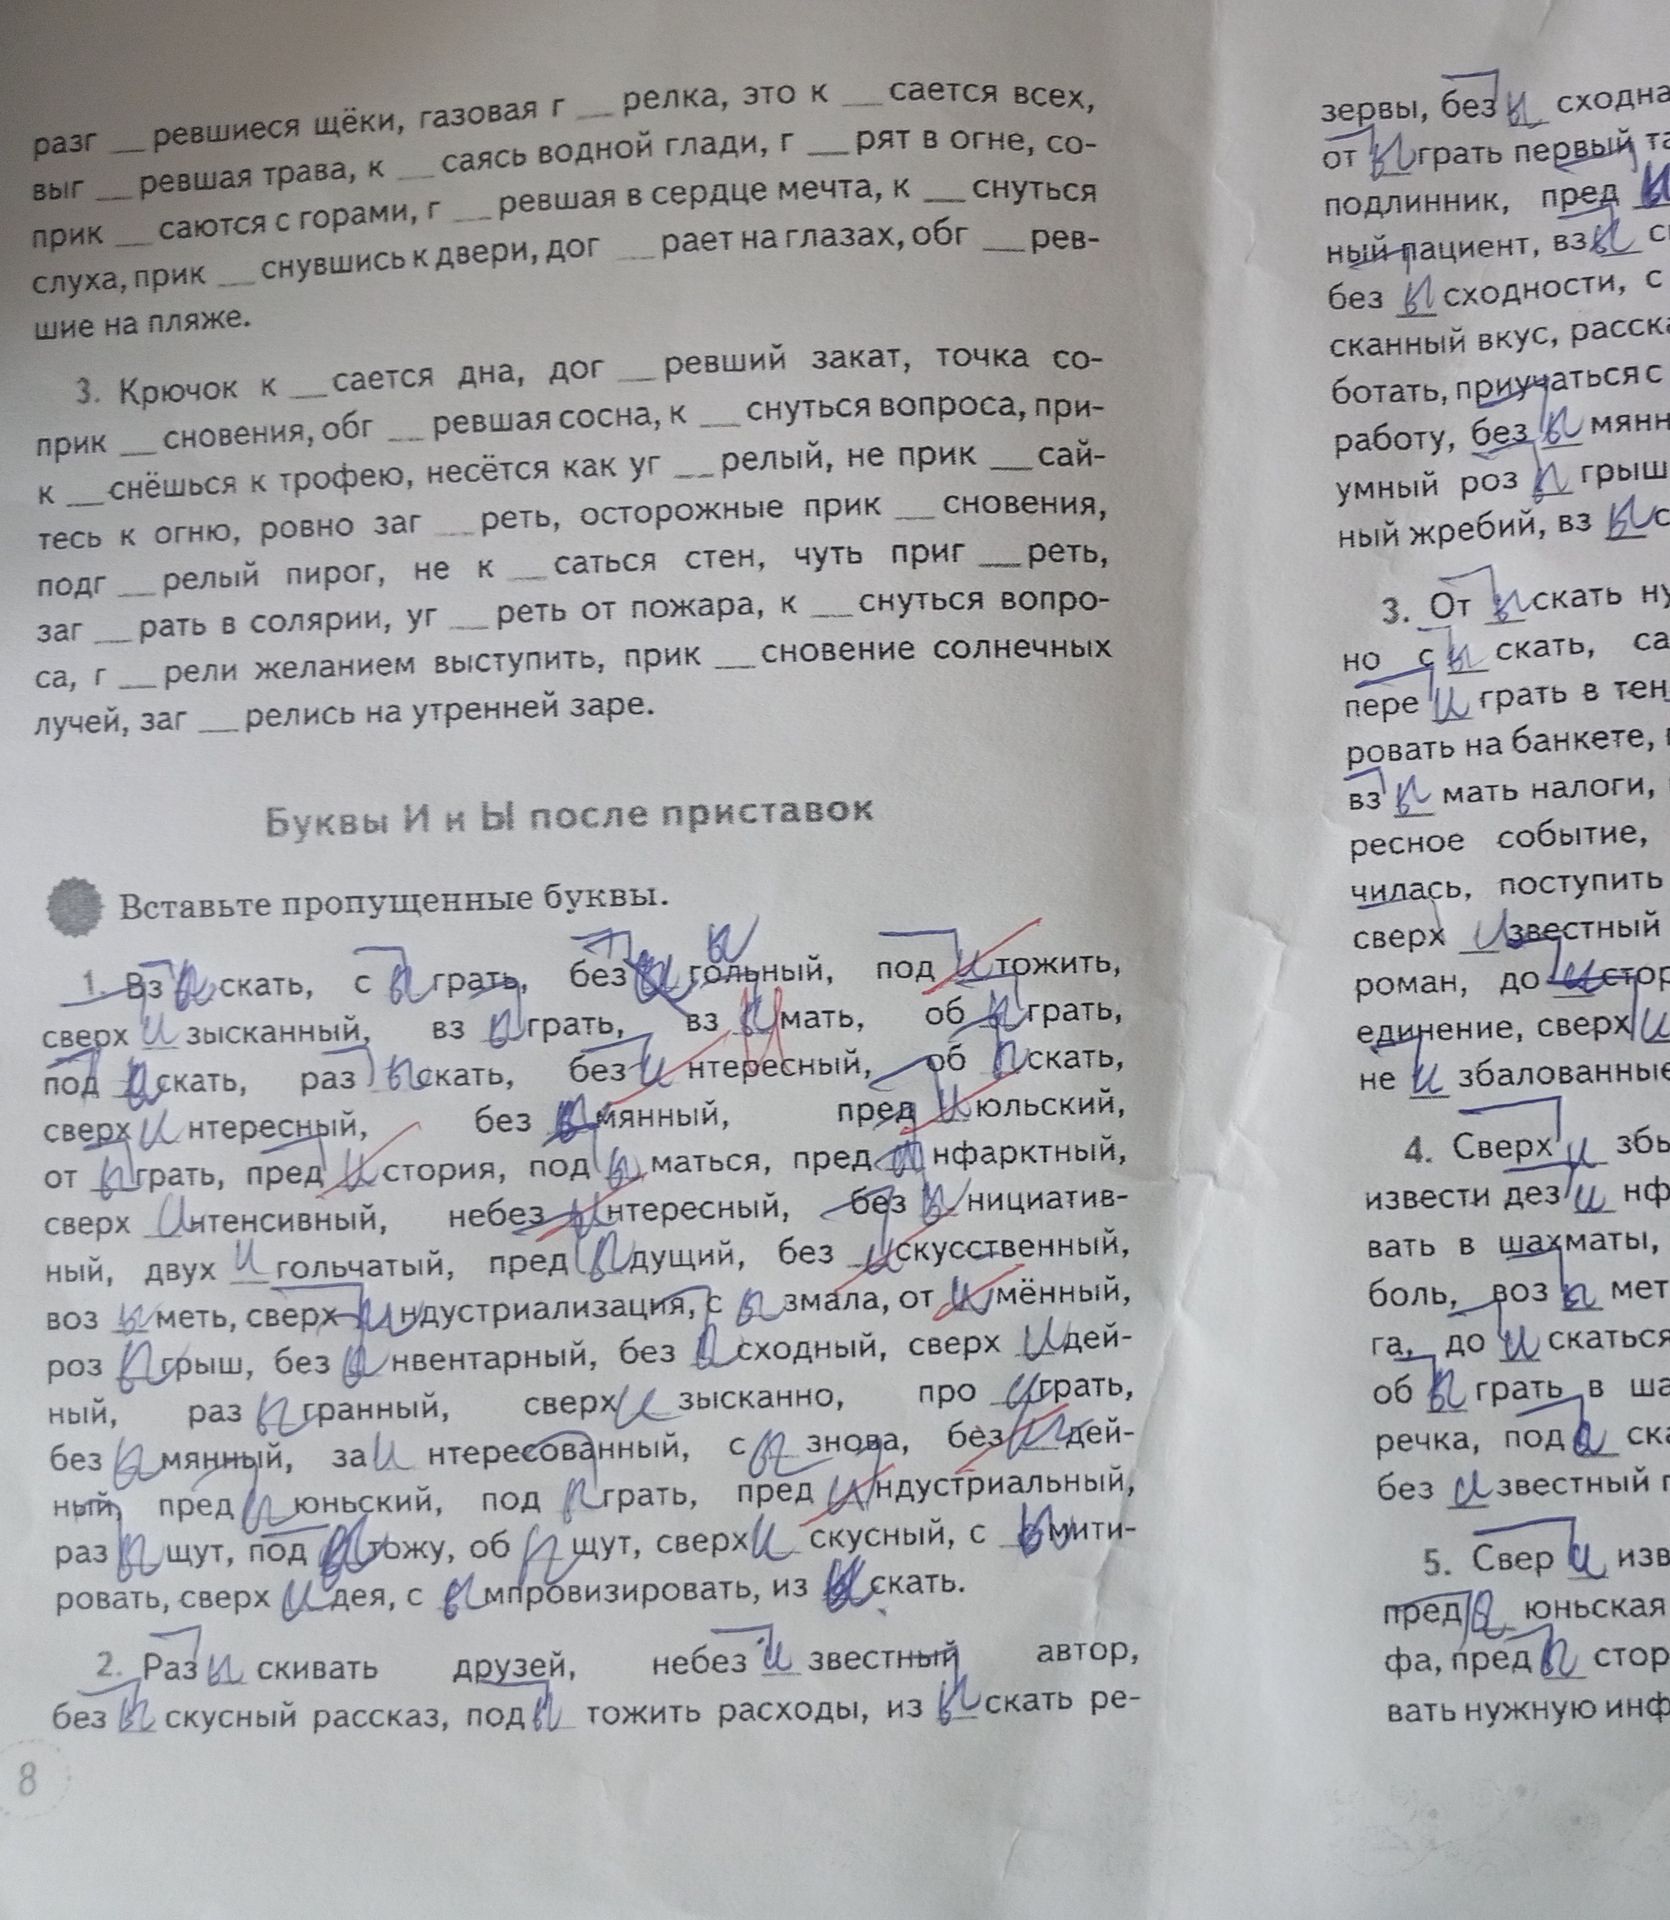 разг __ ревшиеся щёки, газовая г __ релка, это к __ сается всех,
выг __ ревшая трава, к __ саясь водной глади, г __ рят в огне, со-
прик __ саются с горами, г __ ревшая в сердце мечта, к __ снуться
слуха, прик __ снувшись к двери, дог __ рает на глазах, обг __ рев-
шие на пляже.
3. Крючок к __ сается дна, дог __ ревший закат, точка со-
прик __ сновения, обг __ ревшая сосна, к __ снуться вопроса, при-
к __ снёшься к трофею, несётся как уг __ релый, не прик __ сай-
тесь к огню, ровно заг __ реть, осторожные прик __ сновения,
подг __ релый пирог, не к __ саться стен, чуть приг __ реть,
заг __ рать в солярии, уг __ реть от пожара, к __ снуться вопро-
са, г __ рели желанием выступить, прик __ сновение солнечных
лучей, заг __ релись на утренней заре.
Буквы И и Ы после приставок
Вставьте пропущенные буквы.
1. Вз ы скать, с ы грать, без ы гольный, под и тожить,
сверх и зысканный, вз ы грать, вз и мать, об ы грать,
под ы скать, раз ы скать, без и нтересный, об ы скать,
сверх и нтересный, без ы мянный, пред и юльский,
от ы грать, пред и стория, под ы маться, пред ы нфарктный,
сверх и нтенсивный, небез и нтересный, без ы нициатив-
ный, двух и гольчатый, пред ы дущий, без и скусственный,
воз ы меть, сверх и ндустриализация, с ы змала, от и мённый,
роз ы грыш, без ы нвентарный, без ы сходный, сверх и дей-
ный, раз ы гранный, сверх и зысканно, про и грать,
без ы мянный, за и нтересованный, с ы знова, без и дей-
ный, пред ы юньский, под ы грать, пред и ндустриальный,
раз ы щут, под ы тожу, об ы щут, сверх и скусный, с ы мити-
ровать, сверх и дея, с ы мпровизировать, из ы скать.
2. Раз ы скивать друзей, небез и звестный автор,
без ы скусный рассказ, под ы тожить расходы, из ы скать ре-
8
зервы, без ы сходна
от ы грать первый
подлинник, пред ы
ный пациент, вз ы
без ы сходности, с
сканный вкус, расска
ботать, приучаться с
работу, без ы мянн
умный роз ы грыш
ный жребий, вз ы с
3. От ы скать
но с ы скать,
пере и грать в тен
ровать на банкете,
вз ы мать налоги,
ресное событие,
чилась, поступить
сверх и звестный
роман, до и стор
единение, сверх и
не и збалованные
4. Сверх и збы
извести дез и нф
вать в шахматы,
боль, воз ы мет
га, до и скаться
об ы грать в ша
речка, под ы ска
без и звестный
5. Свер и изв
пред ы юньская
фа, пред ы стор
вать нужную инф